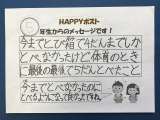 HAPPYポスト
年生からのメッセージです!
今までとび箱で4だんまでしか
とべなかったけど体育のとき
に最後の最後で5だんとべたこと
今までとべなかったのに
とべるようになって良かったですね。